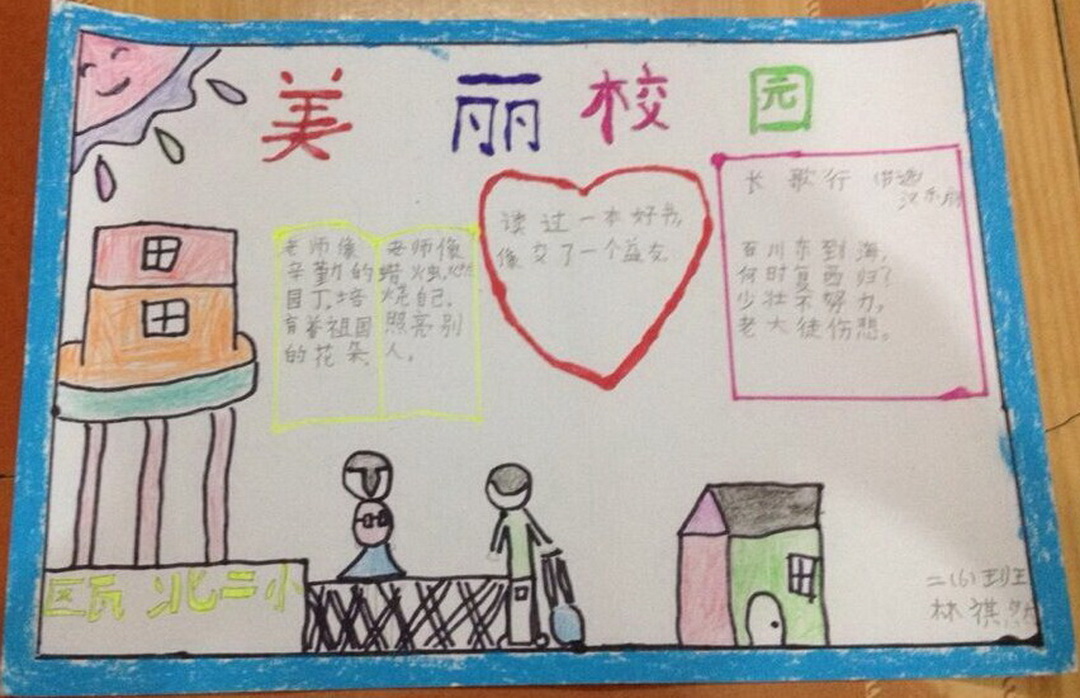 美丽校园
老师像
辛勤的
园丁,培
育着祖国
的花朵.
老师像
蜡烛,燃
烧自己,
照亮别
人。
读过一本好书,
像交了一个益友.
长歌行 节选
汉乐府
百川东到海,
何时复西归?
少壮不努力,
老大徒伤悲。
瓯北二小
二(6)班
林祺